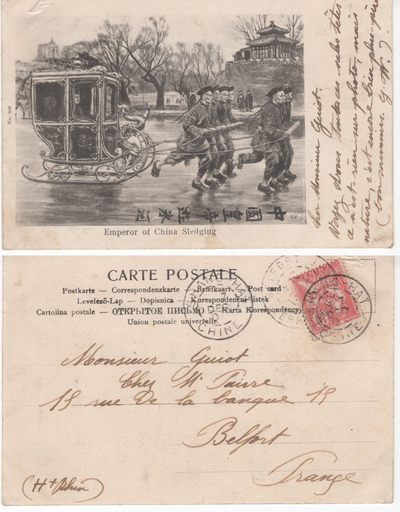 中國皇帝遊氷
Emperor of China Sledging
Cher Monsieur Guiot.
Voyez donc sales têtes
ce n'est rien sur photo, mais
nature, c'est encore bien plus
CARTE POSTALE
Postkarte — Correspondenzkarte — Briefkaart — Post card
Levelező-Lap — Dopisnica — Korespondenční listek
Cartolina postale — ОТКРЫТОЕ ПИСЬМО — Karta Korespondency
Union postale universelle
CHINE
Monsieur Guiot
Chez Mr Faivre
19 rue De la banque 19
Belfort
France
(Ht Rhin)